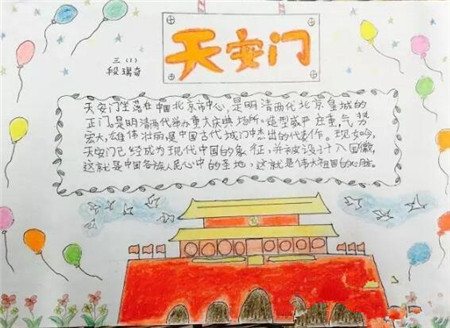 天安门
三（1）
段瑞奇
天安门坐落在中国北京市中心，是明清两代北京皇城的
正门，是明清两代举办重大庆典场所。造型威严庄重，气势
宏大，雄伟壮丽，是中国古代城门中杰出的代表作。现如今，
天安门已经成为现代中国的象征，并被设计入国徽，
这就是中国各族人民心中的圣地，这就是伟大祖国的心脏。